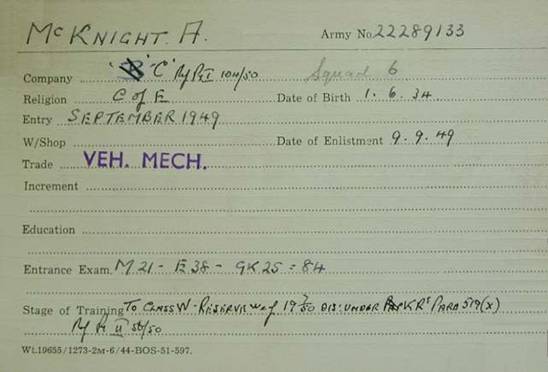 McKNIGHT. A. Army No. 22289133
Company 'C' Pt I 104/50 Squad 6
Religion C of E Date of Birth 1. 6. 34
Entry SEPTEMBER 1949
W/Shop Date of Enlistment 9. 9. 49
Trade VEH. MECH.
Increment
Education
Entrance Exam. M21 - E38 - GK25 = 84
Stage of Training TO CLASS W. RESERVE w.e.f 19/7/50 DIS: UNDER KRs PARA 519(X)
Pt II 56/50
Wt.19655/1273-2M-6/44-BOS-51-597.